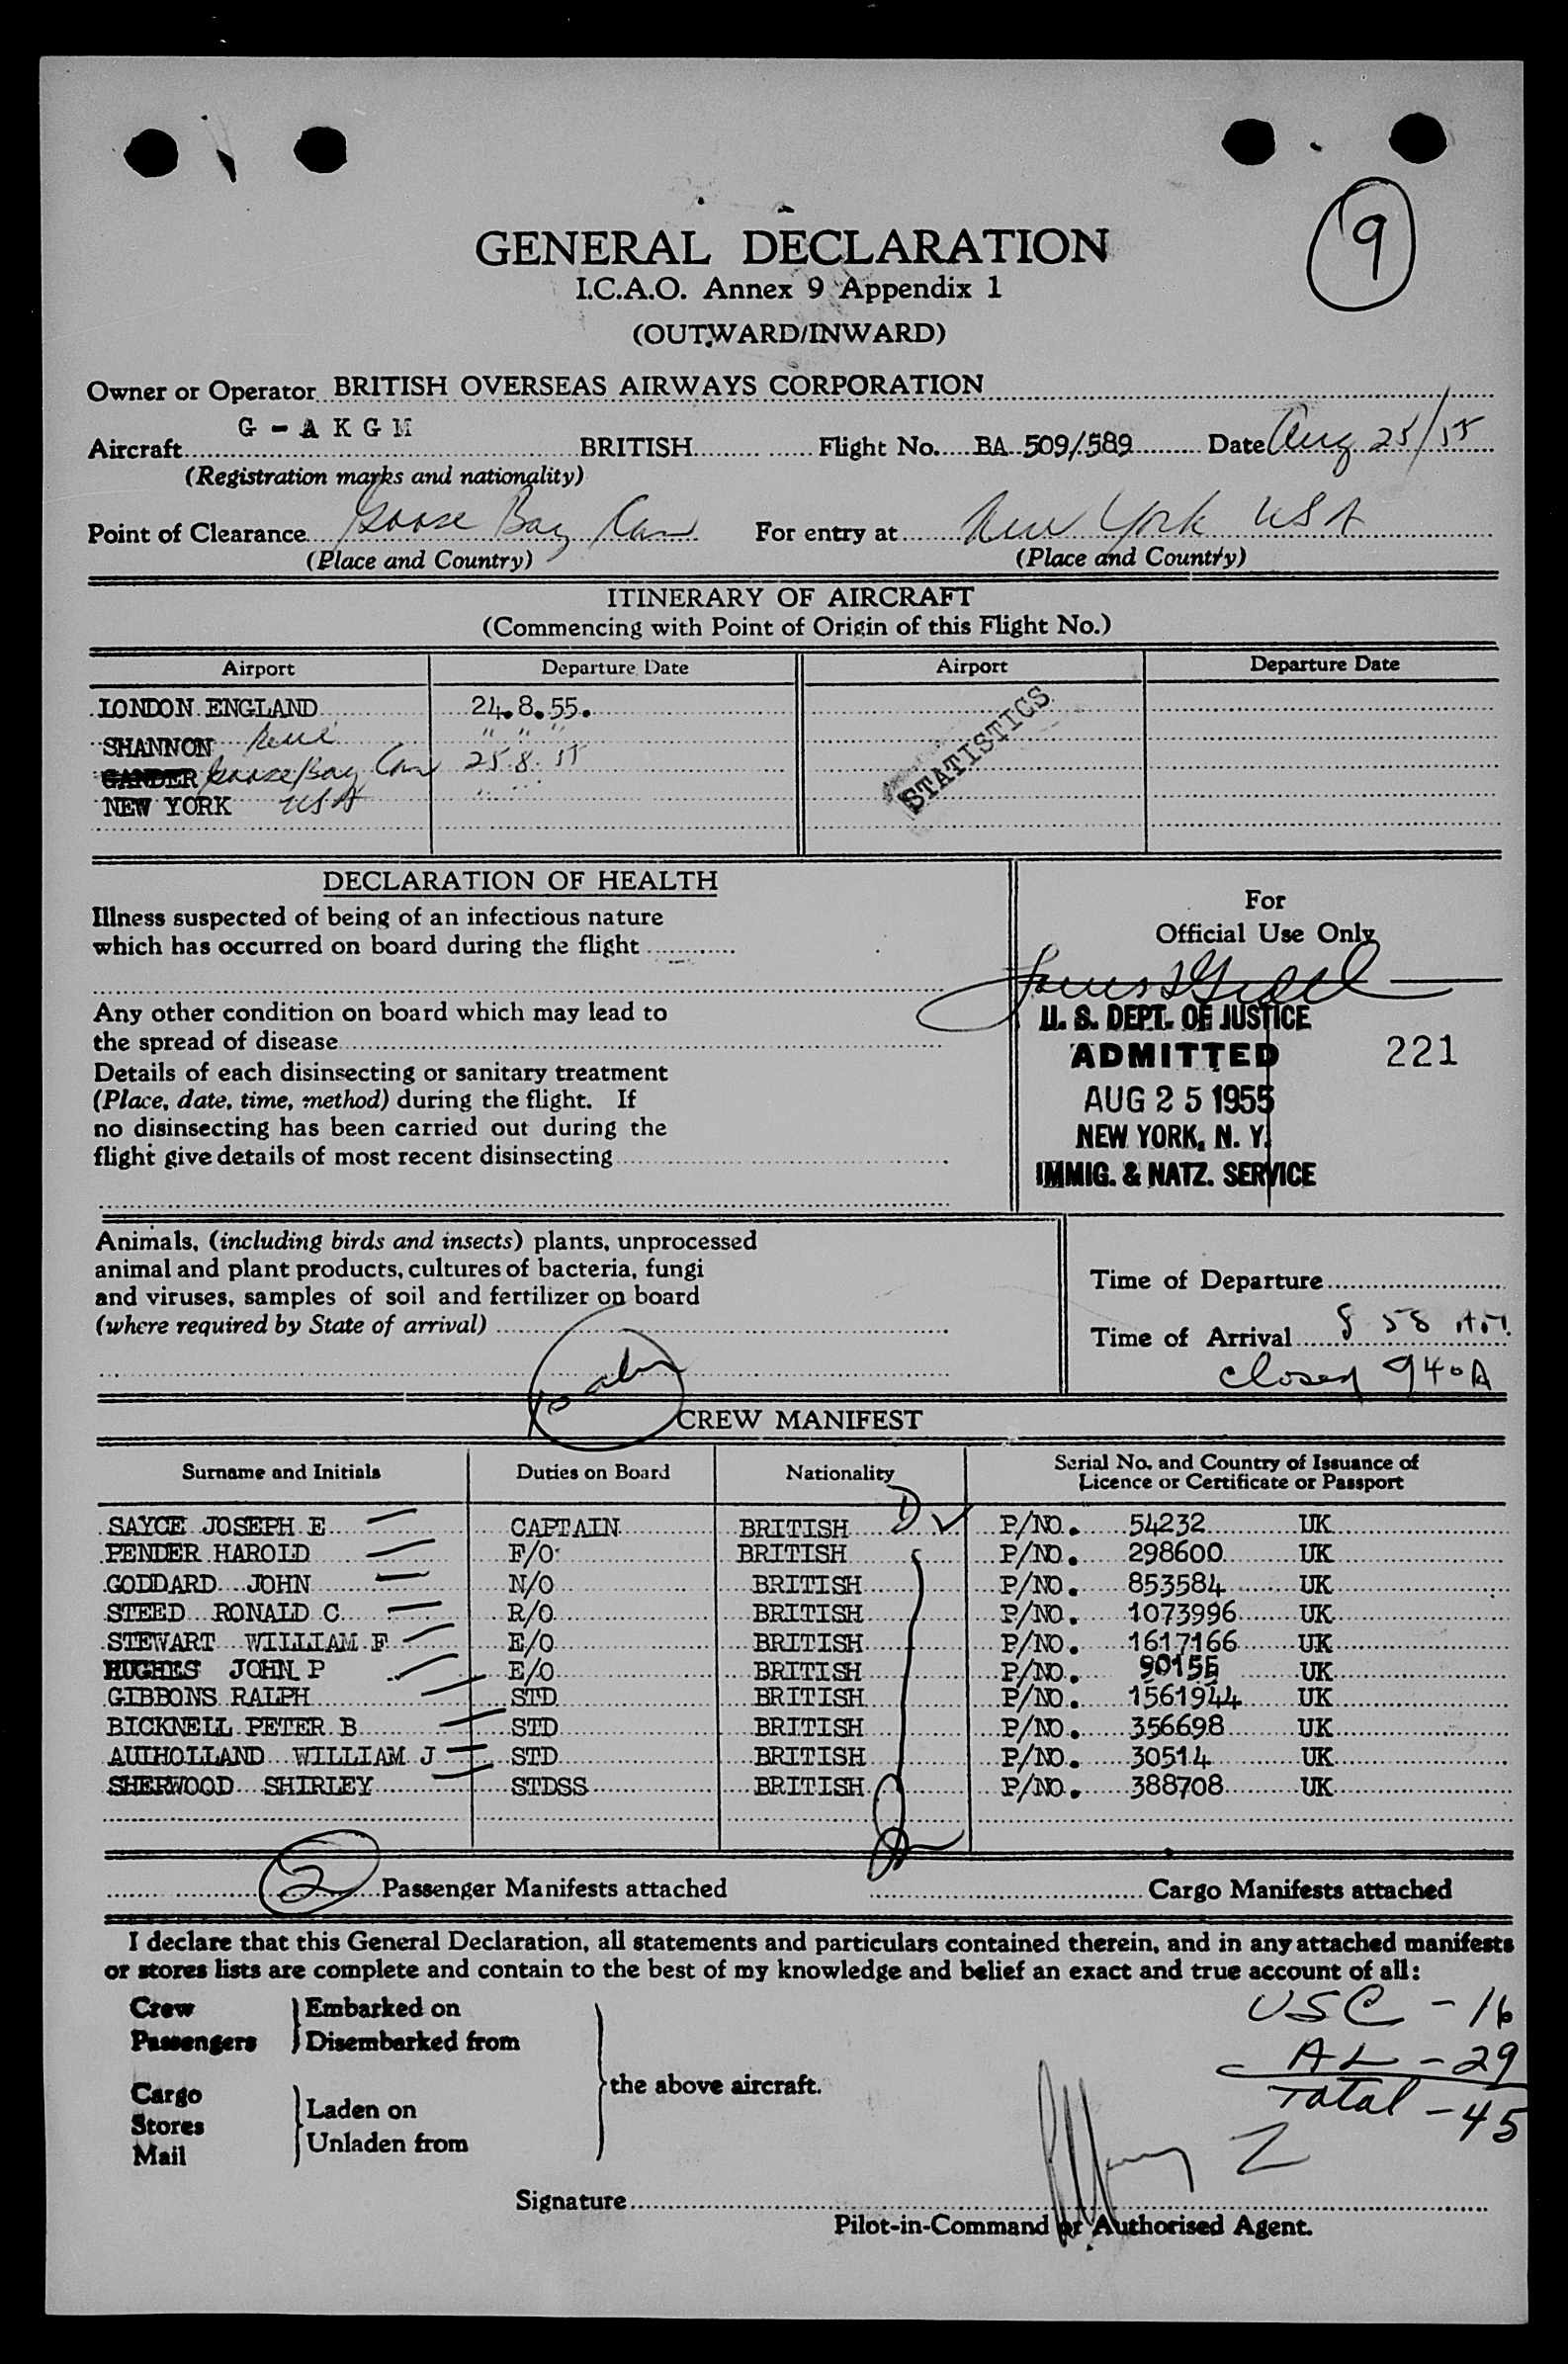 9
GENERAL DECLARATION
I.C.A.O. Annex 9 Appendix 1
(OUTWARD/INWARD)
Owner or Operator BRITISH OVERSEAS AIRWAYS CORPORATION
G - A K G M
Aircraft BRITISH Flight No. BA 509/589 Date Aug 25/55
(Registration marks and nationality)
Point of Clearance Goose Bay Can For entry at New York USA
(Place and Country) (Place and Country)
ITINERARY OF AIRCRAFT
(Commencing with Point of Origin of this Flight No.)
Airport Departure Date Airport Departure Date
LONDON ENGLAND 24.8.55.
SHANNON " " "
GANDER Goose Bay Can 25 8 55
NEW YORK USA " " "
STATISTICS
DECLARATION OF HEALTH
Illness suspected of being of an infectious nature
which has occurred on board during the flight
Any other condition on board which may lead to
the spread of disease
Details of each disinsecting or sanitary treatment
(Place, date, time, method) during the flight. If
no disinsecting has been carried out during the
flight give details of most recent disinsecting
For
Official Use Only
U. S. DEPT. OF JUSTICE
ADMITTED 221
AUG 25 1955
NEW YORK, N. Y.
IMMIG. & NATZ. SERVICE
Animals, (including birds and insects) plants, unprocessed
animal and plant products, cultures of bacteria, fungi
and viruses, samples of soil and fertilizer on board
(where required by State of arrival)
Time of Departure
Time of Arrival 8 58 AM
closed 940A
10
CREW MANIFEST
Surname and Initials Duties on Board Nationality Serial No. and Country of Issuance of Licence or Certificate or Passport
SAYCE JOSEPH E CAPTAIN BRITISH P/NO. 54232 UK
PENDER HAROLD F/O BRITISH P/NO. 298600 UK
GODDARD JOHN N/O BRITISH P/NO. 853584 UK
STEED RONALD C R/O BRITISH P/NO. 1073996 UK
STEWART WILLIAM F E/O BRITISH P/NO. 1617166 UK
HUGHES JOHN P E/O BRITISH P/NO. 90155 UK
GIBBONS RALPH STD BRITISH P/NO. 1561944 UK
BICKNELL PETER B STD BRITISH P/NO. 356698 UK
AUTHOLLAND WILLIAM J STD BRITISH P/NO. 30514 UK
SHERWOOD SHIRLEY STDSS BRITISH P/NO. 388708 UK
2 Passenger Manifests attached Cargo Manifests attached
I declare that this General Declaration, all statements and particulars contained therein, and in any attached manifests
or stores lists are complete and contain to the best of my knowledge and belief an exact and true account of all:
Crew Embarked on
Passengers Disembarked from
the above aircraft.
Cargo
Stores Laden on
Mail Unladen from
USC - 16
AL - 29
Total - 45
Signature
Pilot-in-Command or Authorised Agent.